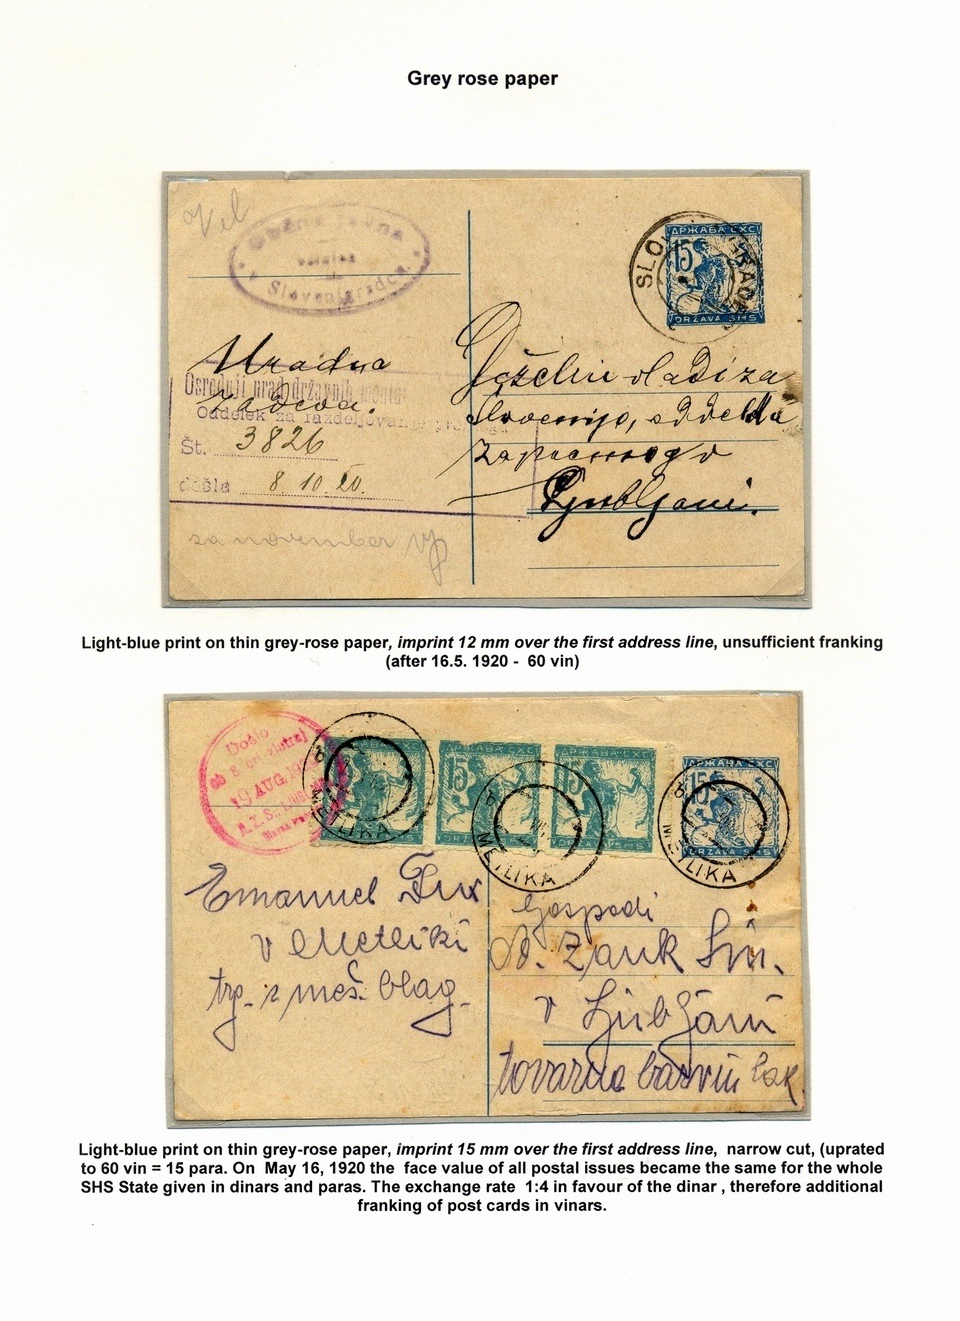 Grey rose paper
Vel
Slovenjgradca.
SLO
ДРЖАВА СХС
15
DRŽAVA SHS
Uradna
zadeva.
Osrednji urad državnih
Oddelek za razdeljevanje
Št. 3826
došla 8. 10. 20.
za november
Deželni vladi za
Slovenijo, oddelku
za
Ljubljani.
Light-blue print on thin grey-rose paper, imprint 12 mm over the first address line, unsufficient franking
(after 16.5. 1920 - 60 vin)
Došlo
19 AUG.
ДРЖАВА СХС
15
ДРЖАВА СХС
15
ДРЖАВА СХС
15
DRŽAVA SHS
METLIKA
METLIKA
METLIKA
Emanuel Fux
v Metliki
trg. z meš. blag.
Gospodi
A. Zank Sin.
v Ljubljani
tovarna barvin lak.
Light-blue print on thin grey-rose paper, imprint 15 mm over the first address line, narrow cut, (uprated
to 60 vin = 15 para. On May 16, 1920 the face value of all postal issues became the same for the whole
SHS State given in dinars and paras. The exchange rate 1:4 in favour of the dinar , therefore additional
franking of post cards in vinars.